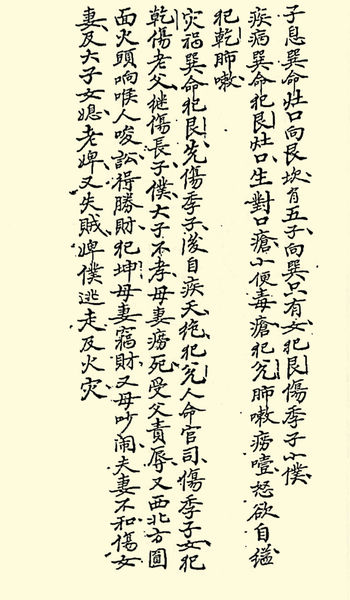 子息巽命灶口向艮坎有五子向巽只有女犯艮傷季子小僕
疾病巽命犯艮灶口生對口瘡小便毒瘡犯兌肺嗽癆噎怒欲自縊
犯乾肺嗽
灾禍巽命犯艮先傷季子後自疾夭絕犯兌人命官司傷季子女犯
乾傷老父継傷長子僕大子不孝母妻癆死受父責辱又西北方圓
面火頭响喉人唆訟得勝財犯坤母妻竊財又母吵闹夫妻不和傷女
妻及大子女媳老婢又失賊婢僕逃走及火灾